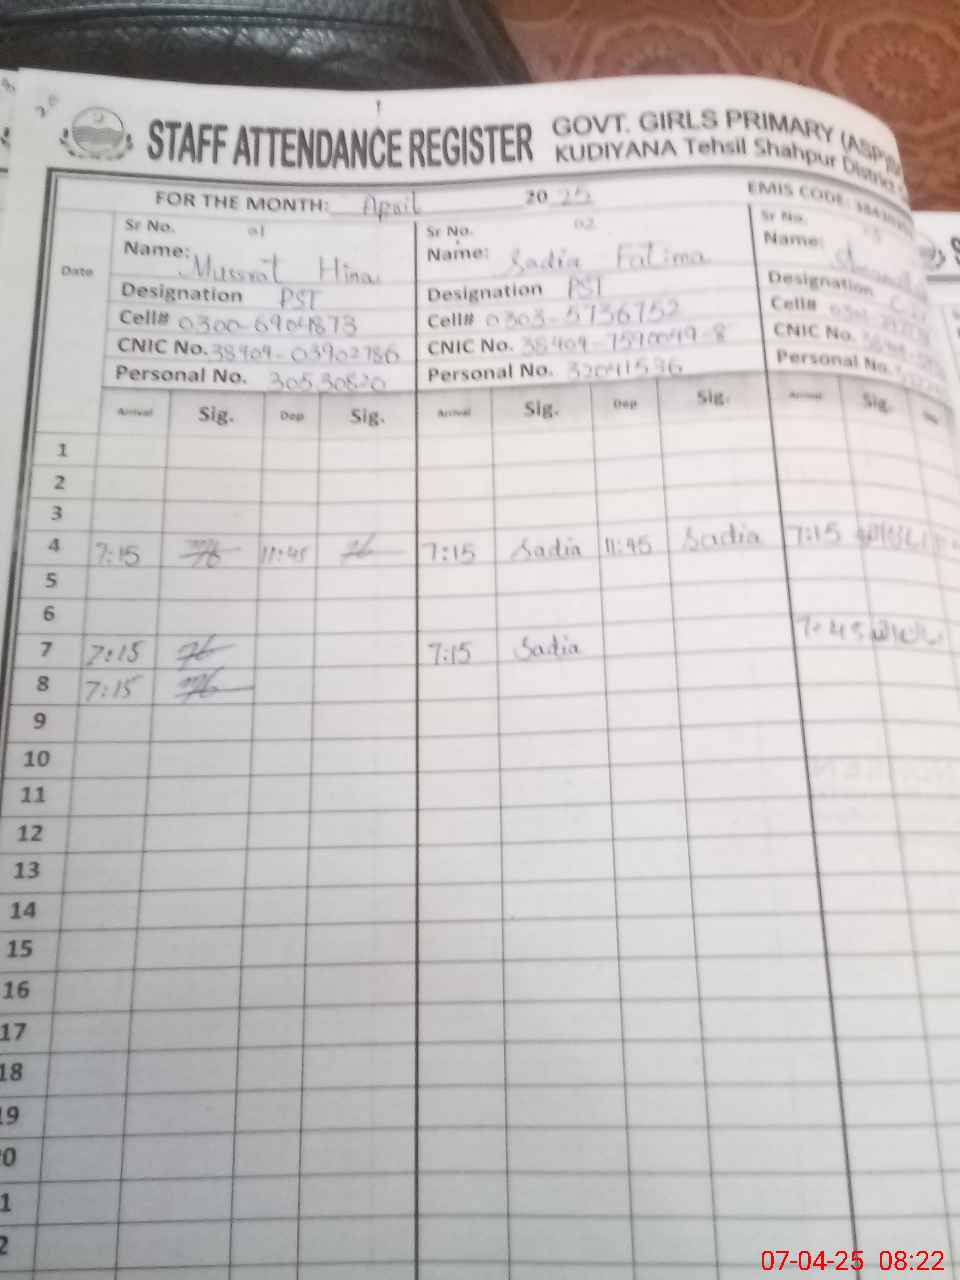 STAFF ATTENDANCE REGISTER
GOVT. GIRLS PRIMARY (ASP)
KUDIYANA Tehsil Shahpur District
FOR THE MONTH: April 2025 EMIS CODE:
Date
Sr No. 01 Sr No. 02 Sr No.
Name: Mussrat Hina Name: Sadia Fatima Name:
Designation PST Designation PST Designation
Cell# 0300-6904873 Cell# 0303-5736752 Cell#
CNIC No. 38404-03902786 CNIC No. 38404-7590049-8 CNIC No.
Personal No. 30530820 Personal No. 32041536 Personal No.
Arrival Sig. Dep Sig. Arrival Sig. Dep Sig. Arrival Sig. Dep
1
2
3
4 7:15 11:45 7:15 Sadia 11:45 Sadia 7:15
5
6
7 7:15 7:15 Sadia 7:45
8 7:15
9
10
11
12
13
14
15
16
17
18
19
0
1
2
07-04-25 08:22